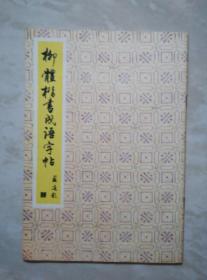 柳體楷書成語字帖